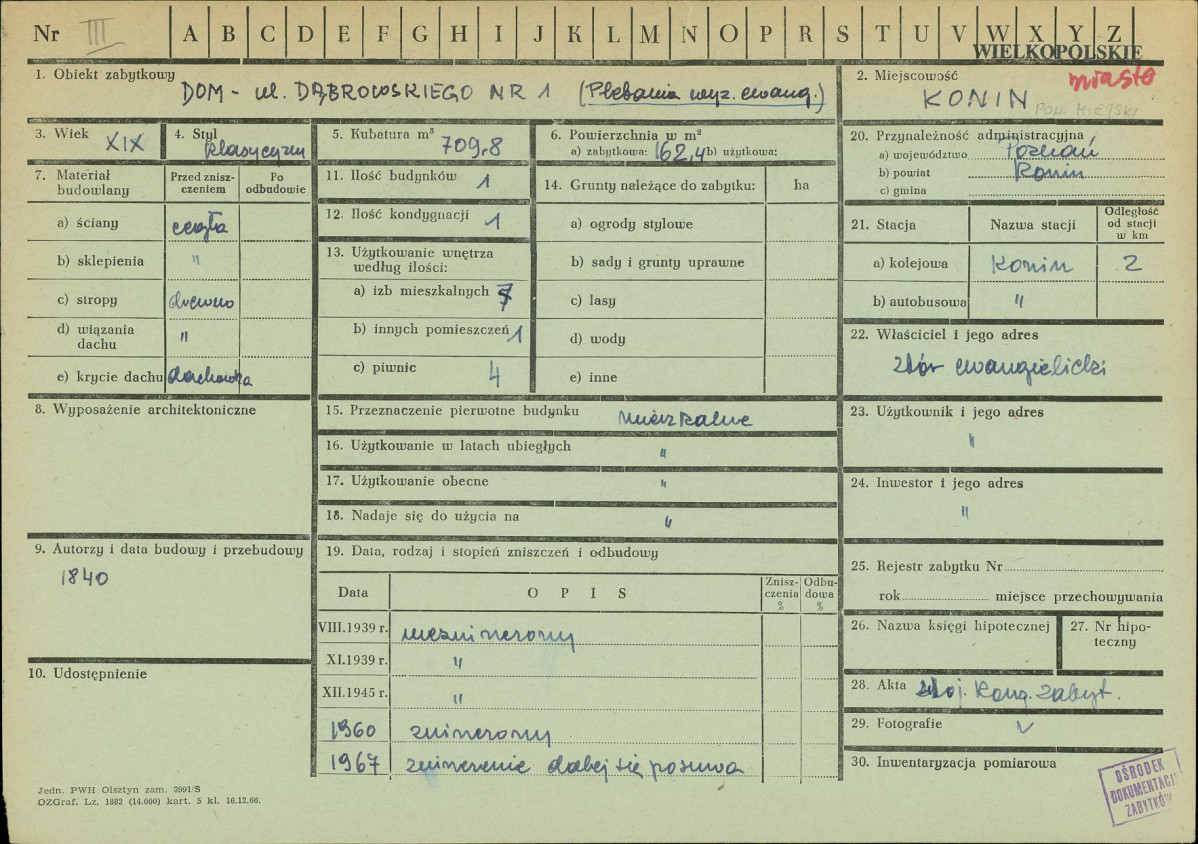 Nr III A B C D E F G H I J K L M N O P R S T U V W X Y Z
WIELKOPOLSKIE
1. Obiekt zabytkowy
DOM - ul. DĄBROWSKIEGO NR 1 (Plebania wyz. ewang.)
2. Miejscowość
miasto
KONIN
POW. MIEJSKI
3. Wiek XIX
4. Styl klasycyzm
5. Kubatura m³ 709,8
6. Powierzchnia w m²
a) zabytkowa: 162,4 b) użytkowa:
7. Materiał budowlany
Przed znisz-
czeniem
Po
odbudowie
a) ściany cegła
b) sklepienia "
c) stropy drewno
d) wiązania
dachu "
e) krycie dachu dachówka
8. Wyposażenie architektoniczne
9. Autorzy i data budowy i przebudowy
1840
10. Udostępnienie
11. Ilość budynków 1
12. Ilość kondygnacji 1
13. Użytkowanie wnętrza
według ilości:
a) izb mieszkalnych 7
b) innych pomieszczeń 1
c) piwnic 4
14. Grunty należące do zabytku: ha
a) ogrody stylowe
b) sady i grunty uprawne
c) lasy
d) wody
e) inne
15. Przeznaczenie pierwotne budynku mieszkalne
16. Użytkowanie w latach ubiegłych "
17. Użytkowanie obecne "
18. Nadaje się do użycia na "
19. Data, rodzaj i stopień zniszczeń i odbudowy
Data OPIS
Znisz-
czenia
%
Odbu-
dowa
%
VIII.1939 r. niezniszczony
XI.1939 r. "
XII.1945 r. "
1960 zniszczony
1967 zniszczenie dalej się posuwa
20. Przynależność administracyjna
a) województwo Poznań
b) powiat Konin
c) gmina
21. Stacja Nazwa stacji
Odległość
od stacji
w km
a) kolejowa Konin 2
b) autobusowa "
22. Właściciel i jego adres
zbór ewangielicki
23. Użytkownik i jego adres
"
24. Inwestor i jego adres
"
25. Rejestr zabytku Nr
rok miejsce przechowywania
26. Nazwa księgi hipotecznej
27. Nr hipo-
teczny
28. Akta Woj. Kons. Zabyt.
29. Fotografie V
30. Inwentaryzacja pomiarowa
OŚRODEK
DOKUMENTACJI
ZABYTKÓW
Jedn. PWH Olsztyn zam. 3991/S
OZGraf. Lz. 1882 (14.000) kart. 5 kl. 16.12.66.